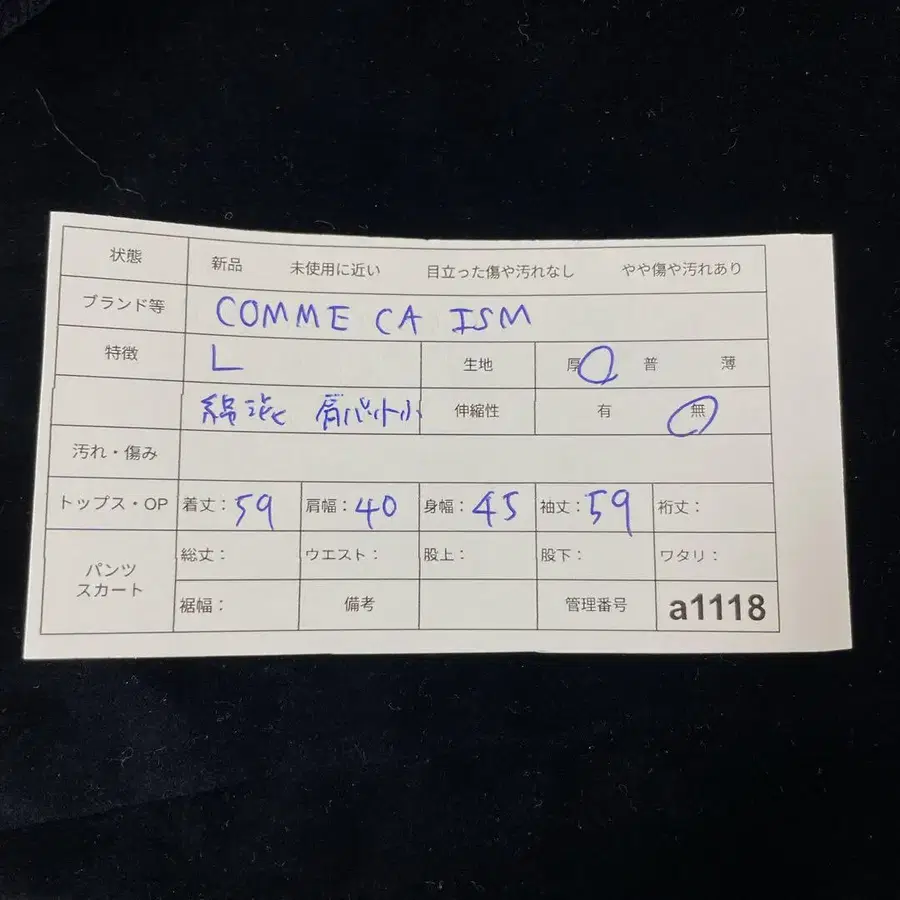 状態 新品 未使用に近い 目立った傷や汚れなし やや傷や汚れあり
ブランド等 COMME CA ISM
特徴 L 生地 厚 普 薄
綿混 肩パット小 伸縮性 有 無
汚れ・傷み
トップス・OP 着丈：59 肩幅：40 身幅：45 袖丈：59 裄丈：
パンツ スカート 総丈： ウエスト： 股上： 股下： ワタリ：
裾幅： 備考 管理番号 a1118